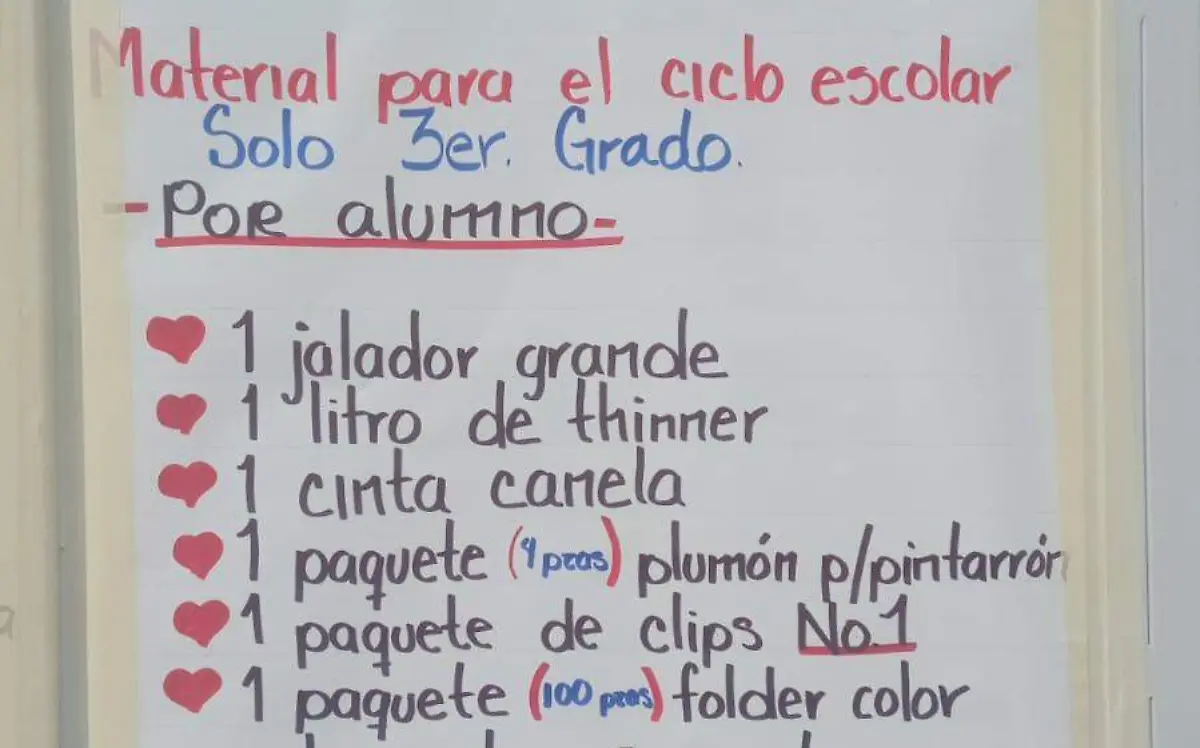 Material para el ciclo escolar
Solo 3er. Grado.
- Por alumno -
1 jalador grande
1 litro de thinner
1 cinta canela
1 paquete (4 pzas) plumón p/pintarrón
1 paquete de clips No.1
1 paquete (100 pzas) folder color